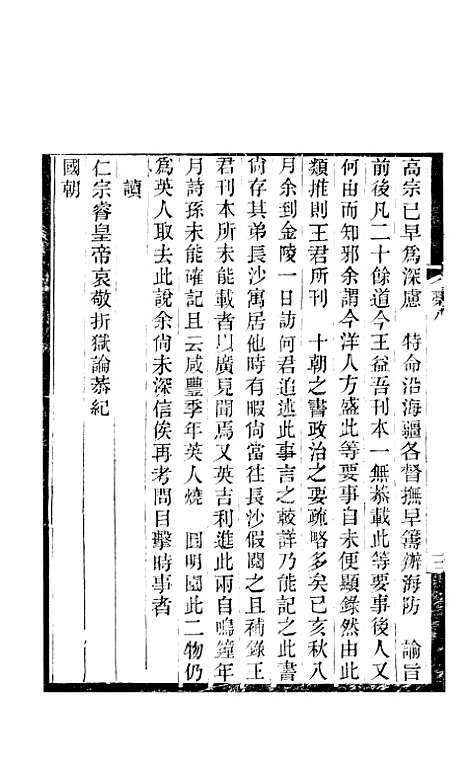 高宗已早為深慮　特命沿海疆各督撫早籌辦海防　諭旨
前後凡二十餘道今王益吾刊本一無恭載此等要事後人又
何由而知邪余謂今洋人方盛此等要事自未便顯錄然由此
類推則王君所刊　十朝之書政治之要疏略多矣己亥秋八
月余到金陵一日訪何君追述此事言之較詳乃能記之此書
尙存其弟長沙寓居他時有暇尙當往長沙假閱之且補錄王
君刊本所未能載者以廣見聞焉又英吉利進此兩自鳴鐘年
月詩孫未能確記且云咸豐季年英人燒　圓明園此二物仍
爲英人取去此說余尙未深信俟再考問目擊時事者
　讀
仁宗睿皇帝哀敬折獄論恭紀
國朝